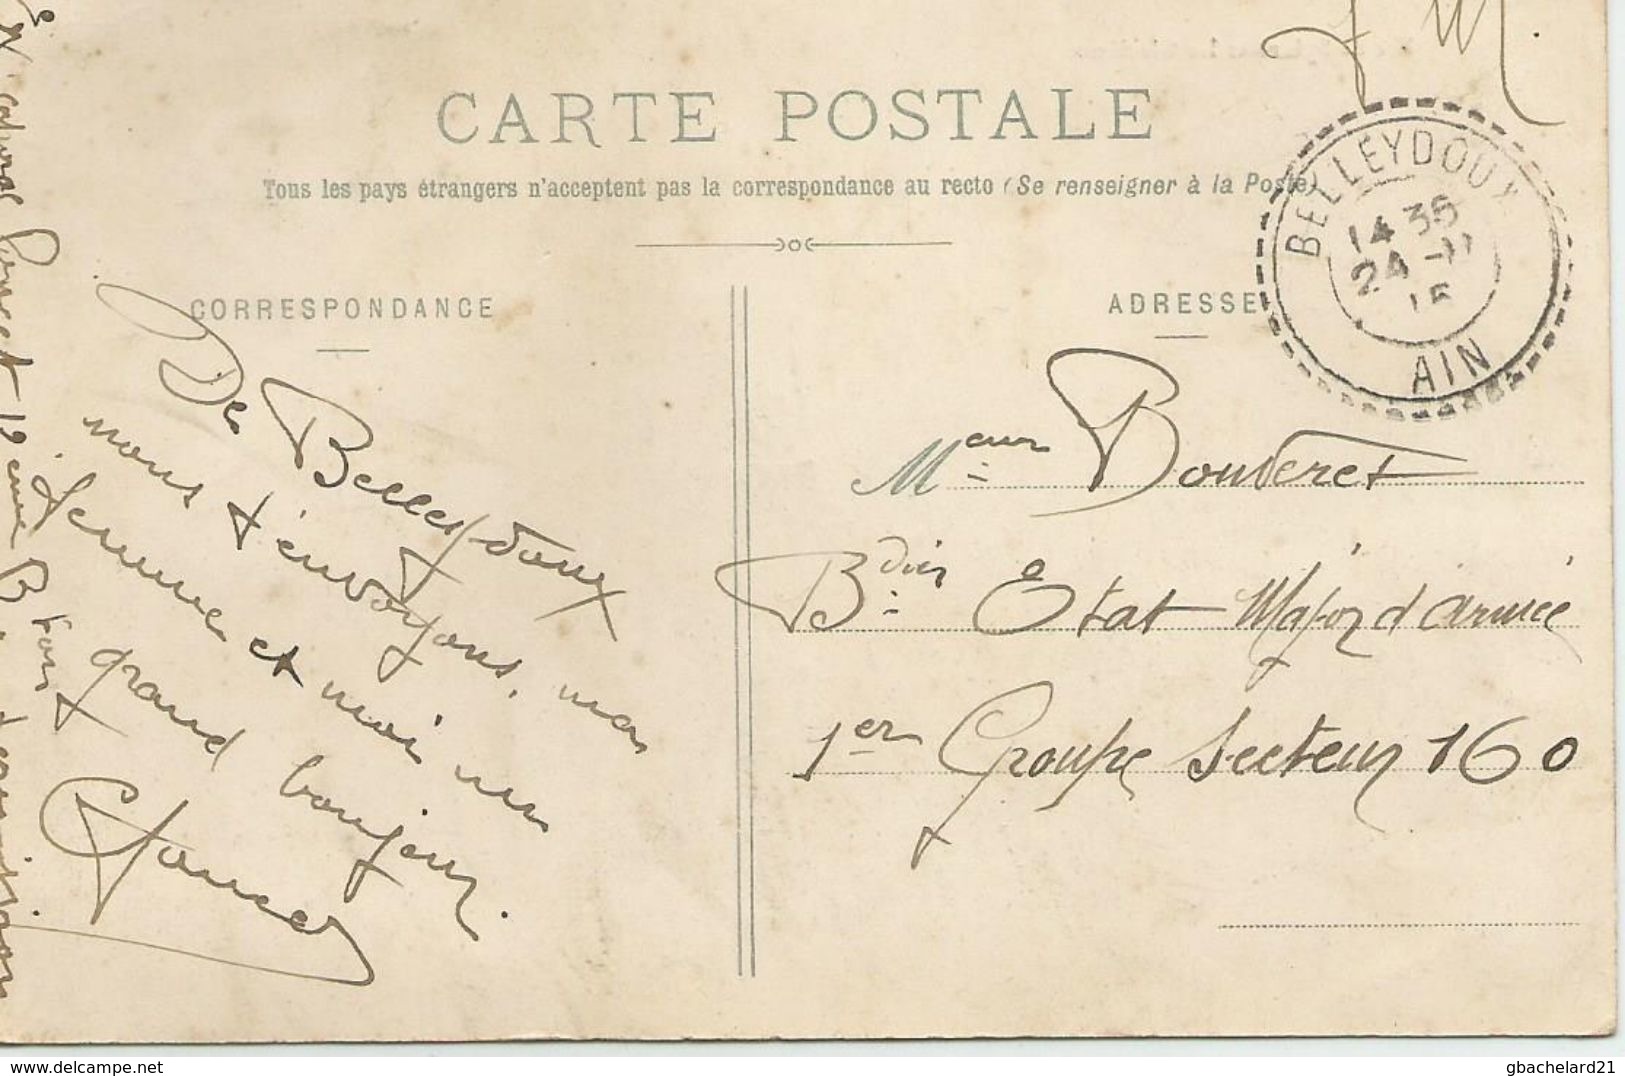 F M.
CARTE POSTALE
Tous les pays étrangers n'acceptent pas la correspondance au recto (Se renseigner à la Poste)
CORRESPONDANCE
ADRESSE
BELLEYDOUX
14 35
24 -11
15
AIN
De Belleydoux
nous t'envoyons, mon
femme et moi un
grand bonjour.
Meur Bouveret
Bdier État Major d'armée
1er Groupe Secteur 160
Poncet 12 ème B ton
gbachelard21